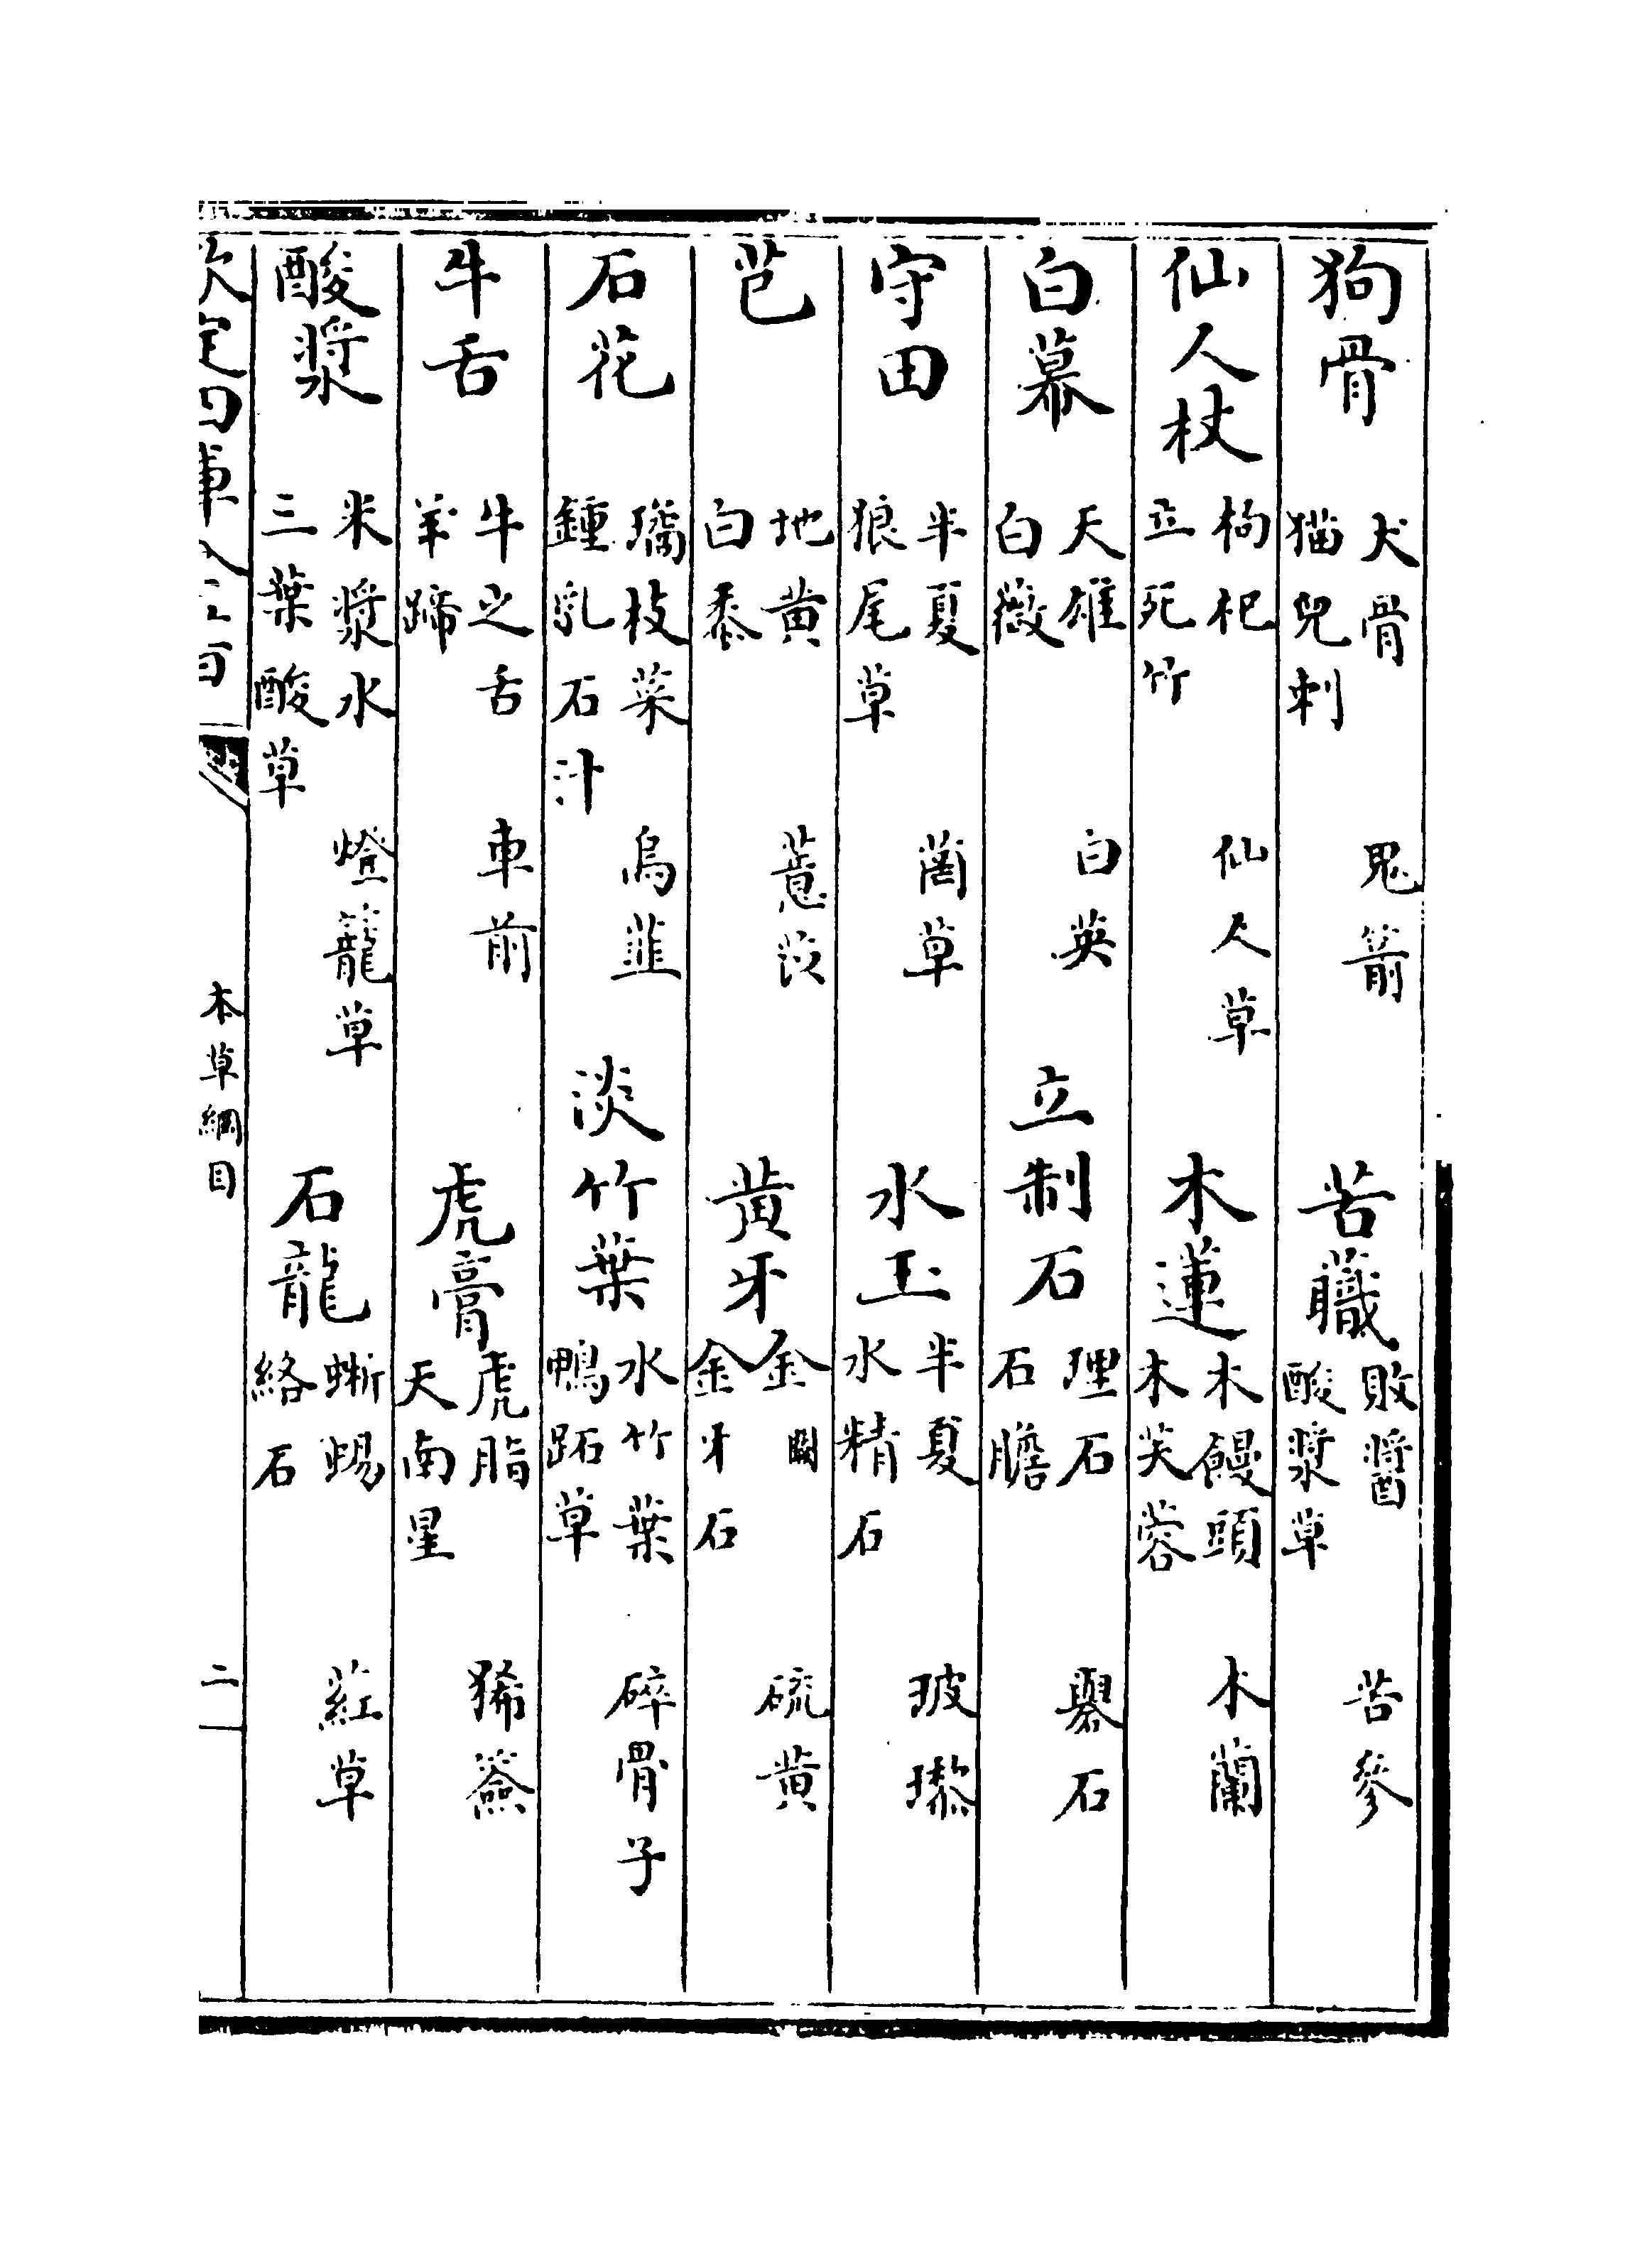 狗骨 犬骨 鬼箭 猫兒刺 苦蘵 敗醬 苦參 酸漿草
仙人杖 枸杞 仙人草 立死竹 木蓮 木饅頭 木蘭 木芙蓉
白幕 天雄 白英 白薇 立制石 理石 礜石 石膽
守田 半夏 菵草 狼尾草 水玉 半夏 玻瓈 水精石
芑 地黄 薏苡 白黍 黄牙 金闕 硫黄 金牙石
石花 璚枝菜 烏韮 鍾乳石汁 淡竹葉 水竹葉 碎骨子 鴨跖草
牛舌 牛之舌 車前 羊蹄 虎膏 虎脂 豨簽 天南星
酸漿 米漿水 燈籠草 三葉酸草 石龍 蜥蜴 葒草 絡石
本草綱目 二